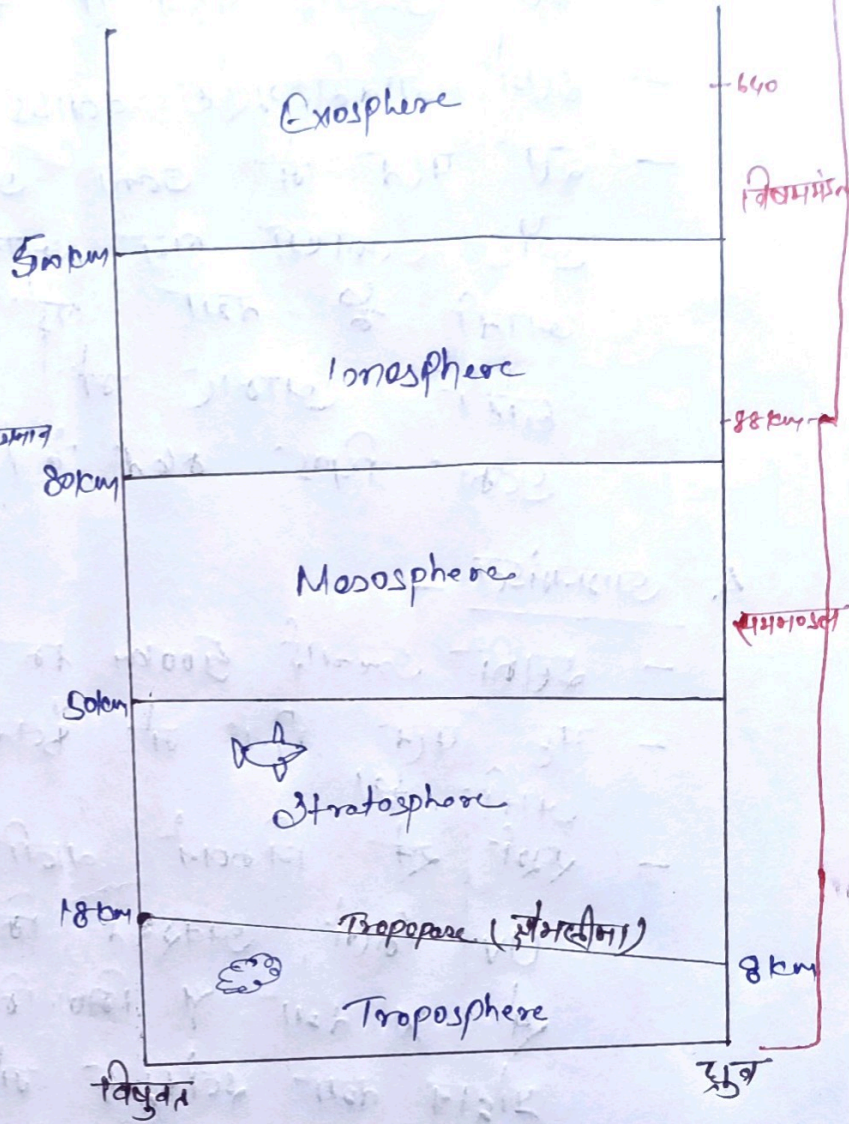 640
Exosphere
विषममंडल
500km
Ionosphere
88km
80km
Mesosphere
सममण्डल
50km
Stratosphere
18km
Tropopase (क्षोभसीमा)
8km
Troposphere
विषुवत
ध्रुव